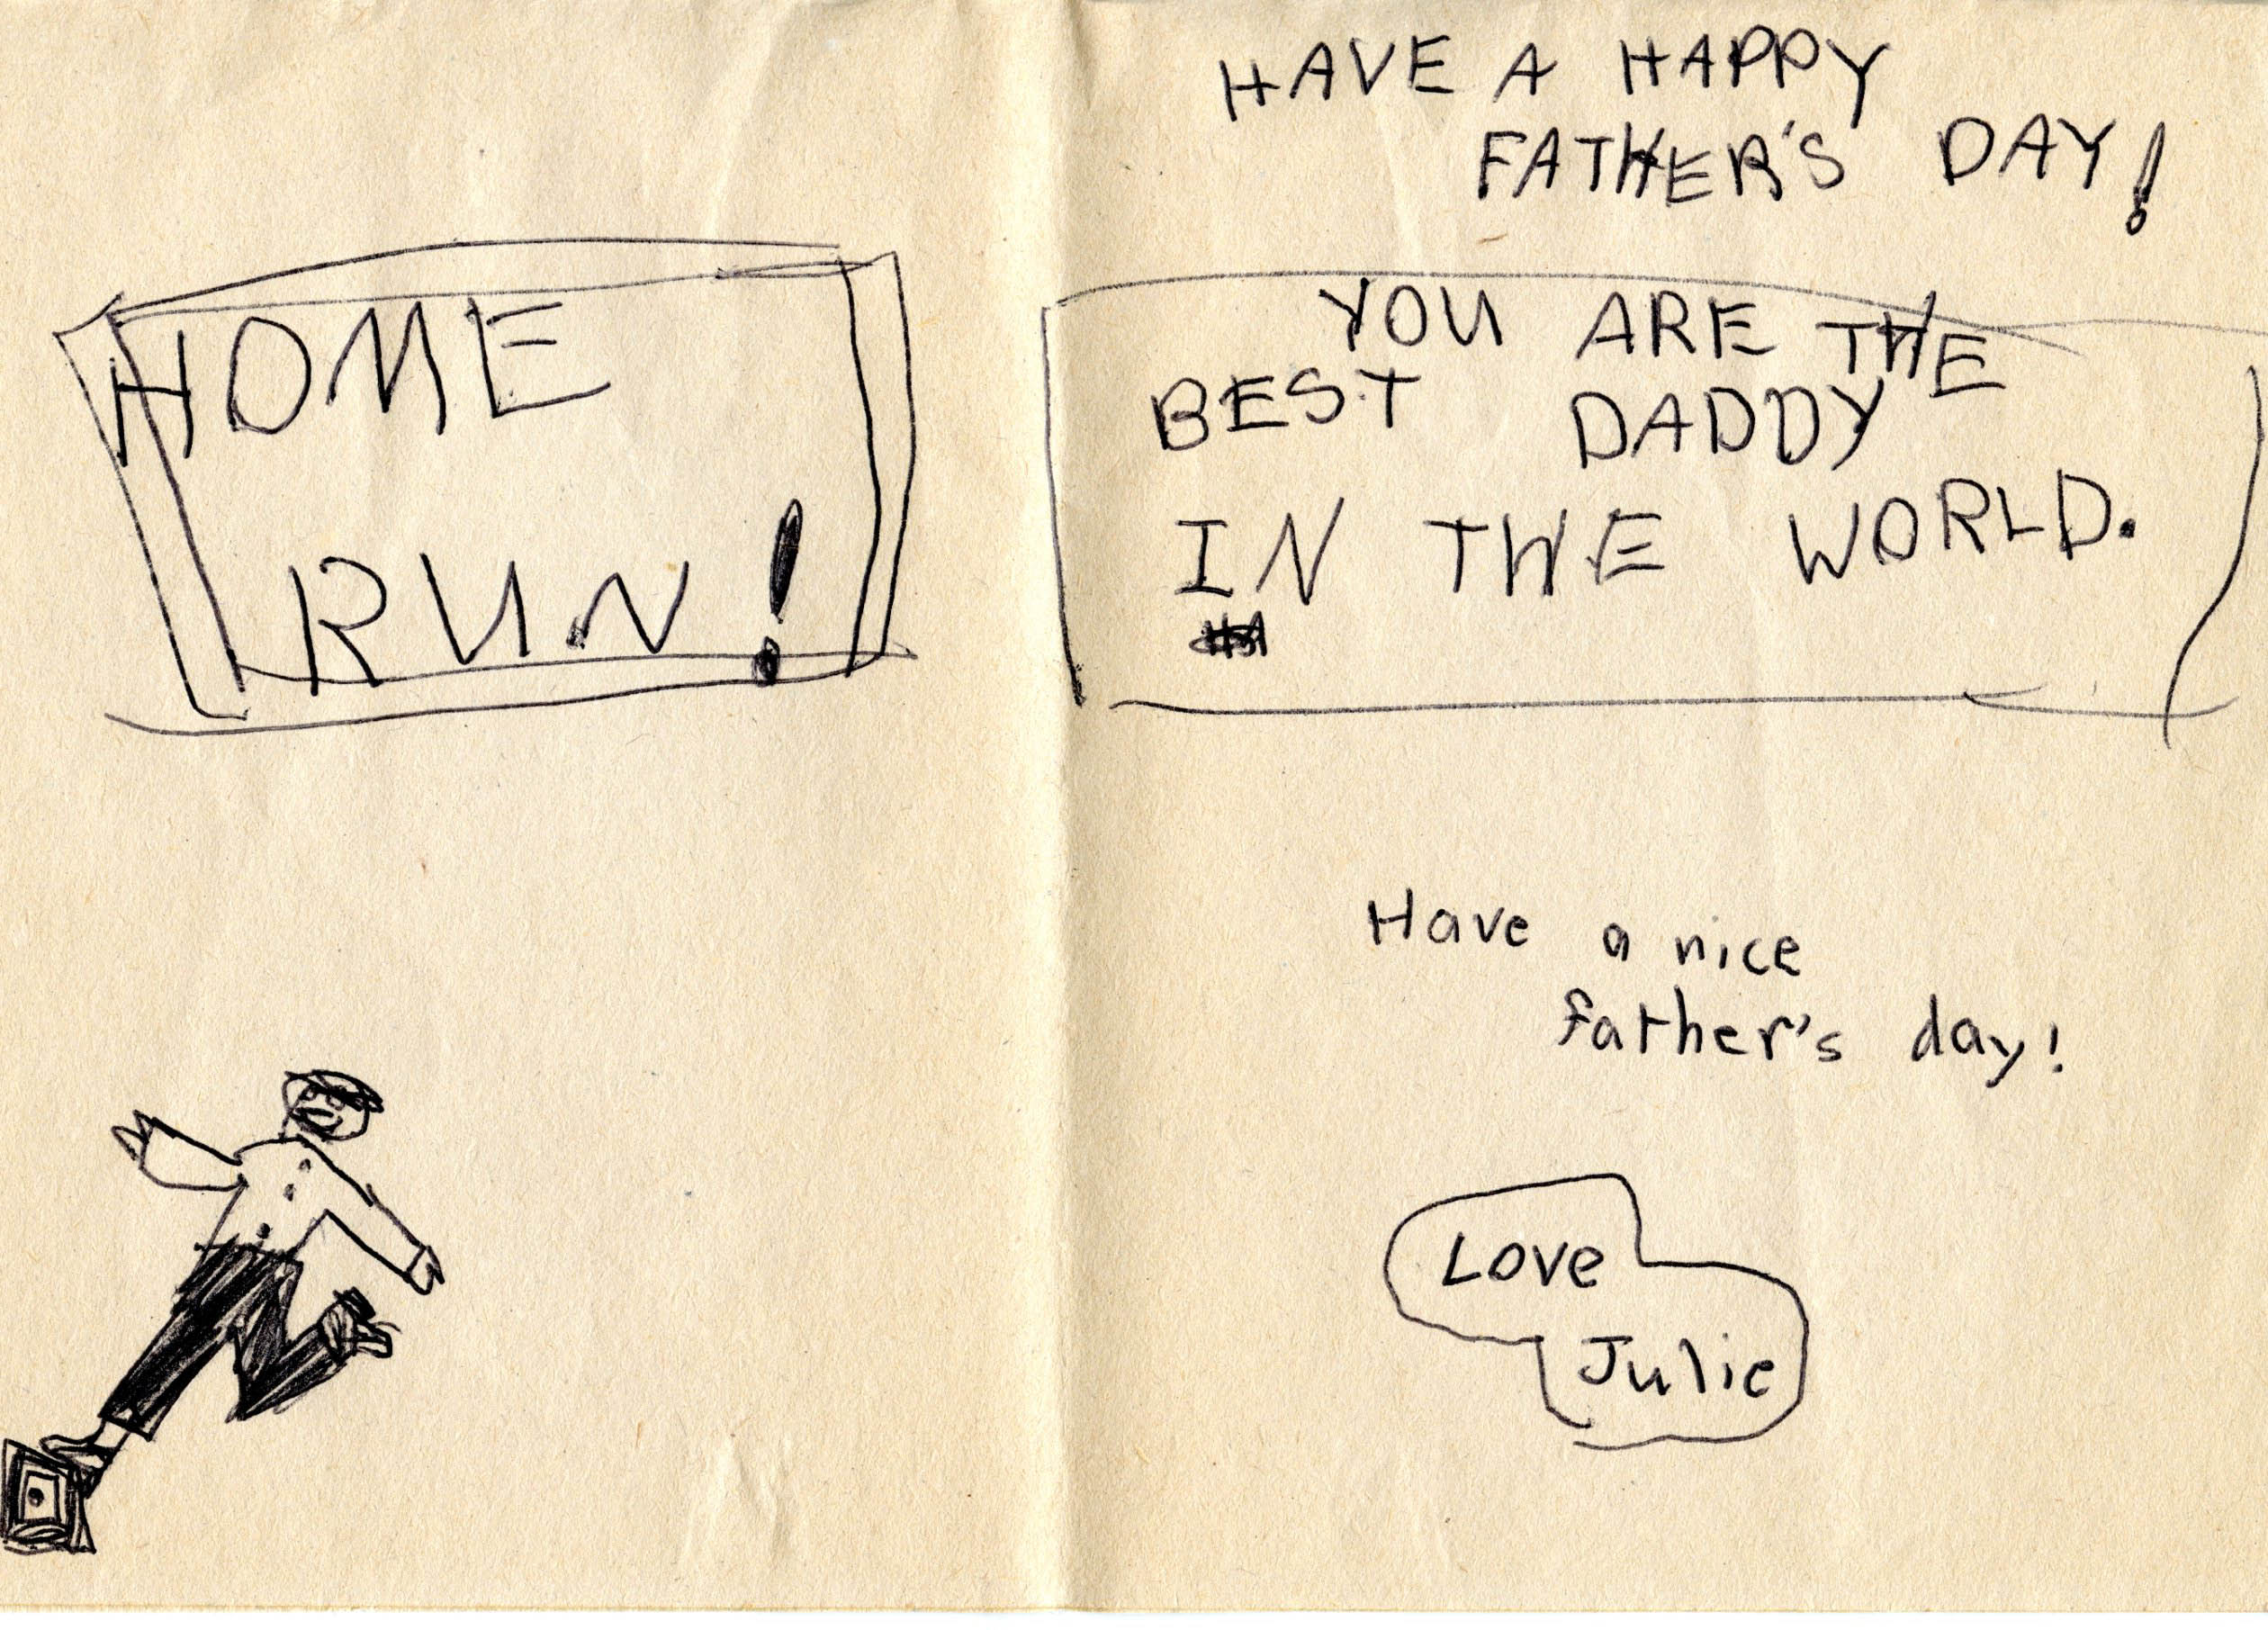 HOME
RUN!
HAVE A HAPPY
FATHER'S DAY!
YOU ARE THE
BEST DADDY
IN THE WORLD.
Have a nice
father's day!
Love
Julie